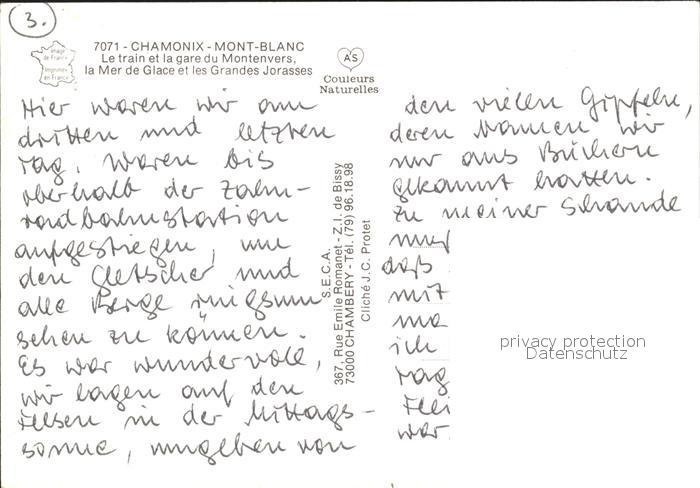 3.
Image de France
Imprimé en France
7071 - CHAMONIX - MONT-BLANC
Le train et la gare du Montenvers,
la Mer de Glace et les Grandes Jorasses
A'S
Couleurs
Naturelles
Hier waren wir am
dritten und letzten
Tag. Waren bis
oberhalb der Zahn-
radbahnstation
aufgestiegen, um
den Gletscher und
alle Berge ringsum
sehen zu können.
Es war wundervoll,
wir lagen auf den
Felsen in der Mittags-
sonne, umgeben von
S.E.C.A.
367, Rue Emile Romanet - Z.I. de Bissy
73000 CHAMBERY - Tél. (79) 96.18.98
Cliché J.C. Protet
den vielen Gipfeln,
deren Namen wir
nur aus Büchern
gekannt hatten.
Zu meiner Schande
muß
daß
mit
ma
ich
Tag
war
privacy protection
Datenschutz